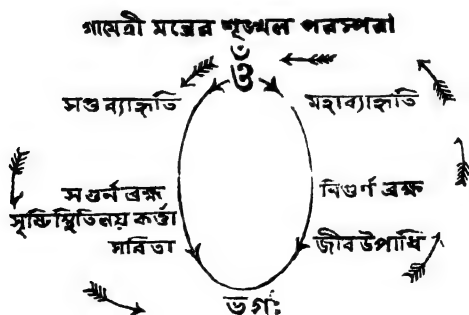 গায়ত্রী মন্ত্রের শৃঙ্খল পরম্পরা
ওঁ
সপ্তব্যাহৃতি
মহাব্যাহৃতি
সগুর্ন ব্রহ্ম
সৃষ্টিস্থিতিলয় কর্ত্তা
সবিতা
নিগুর্ন ব্রহ্ম
জীব উপাধি
ভর্গঃ